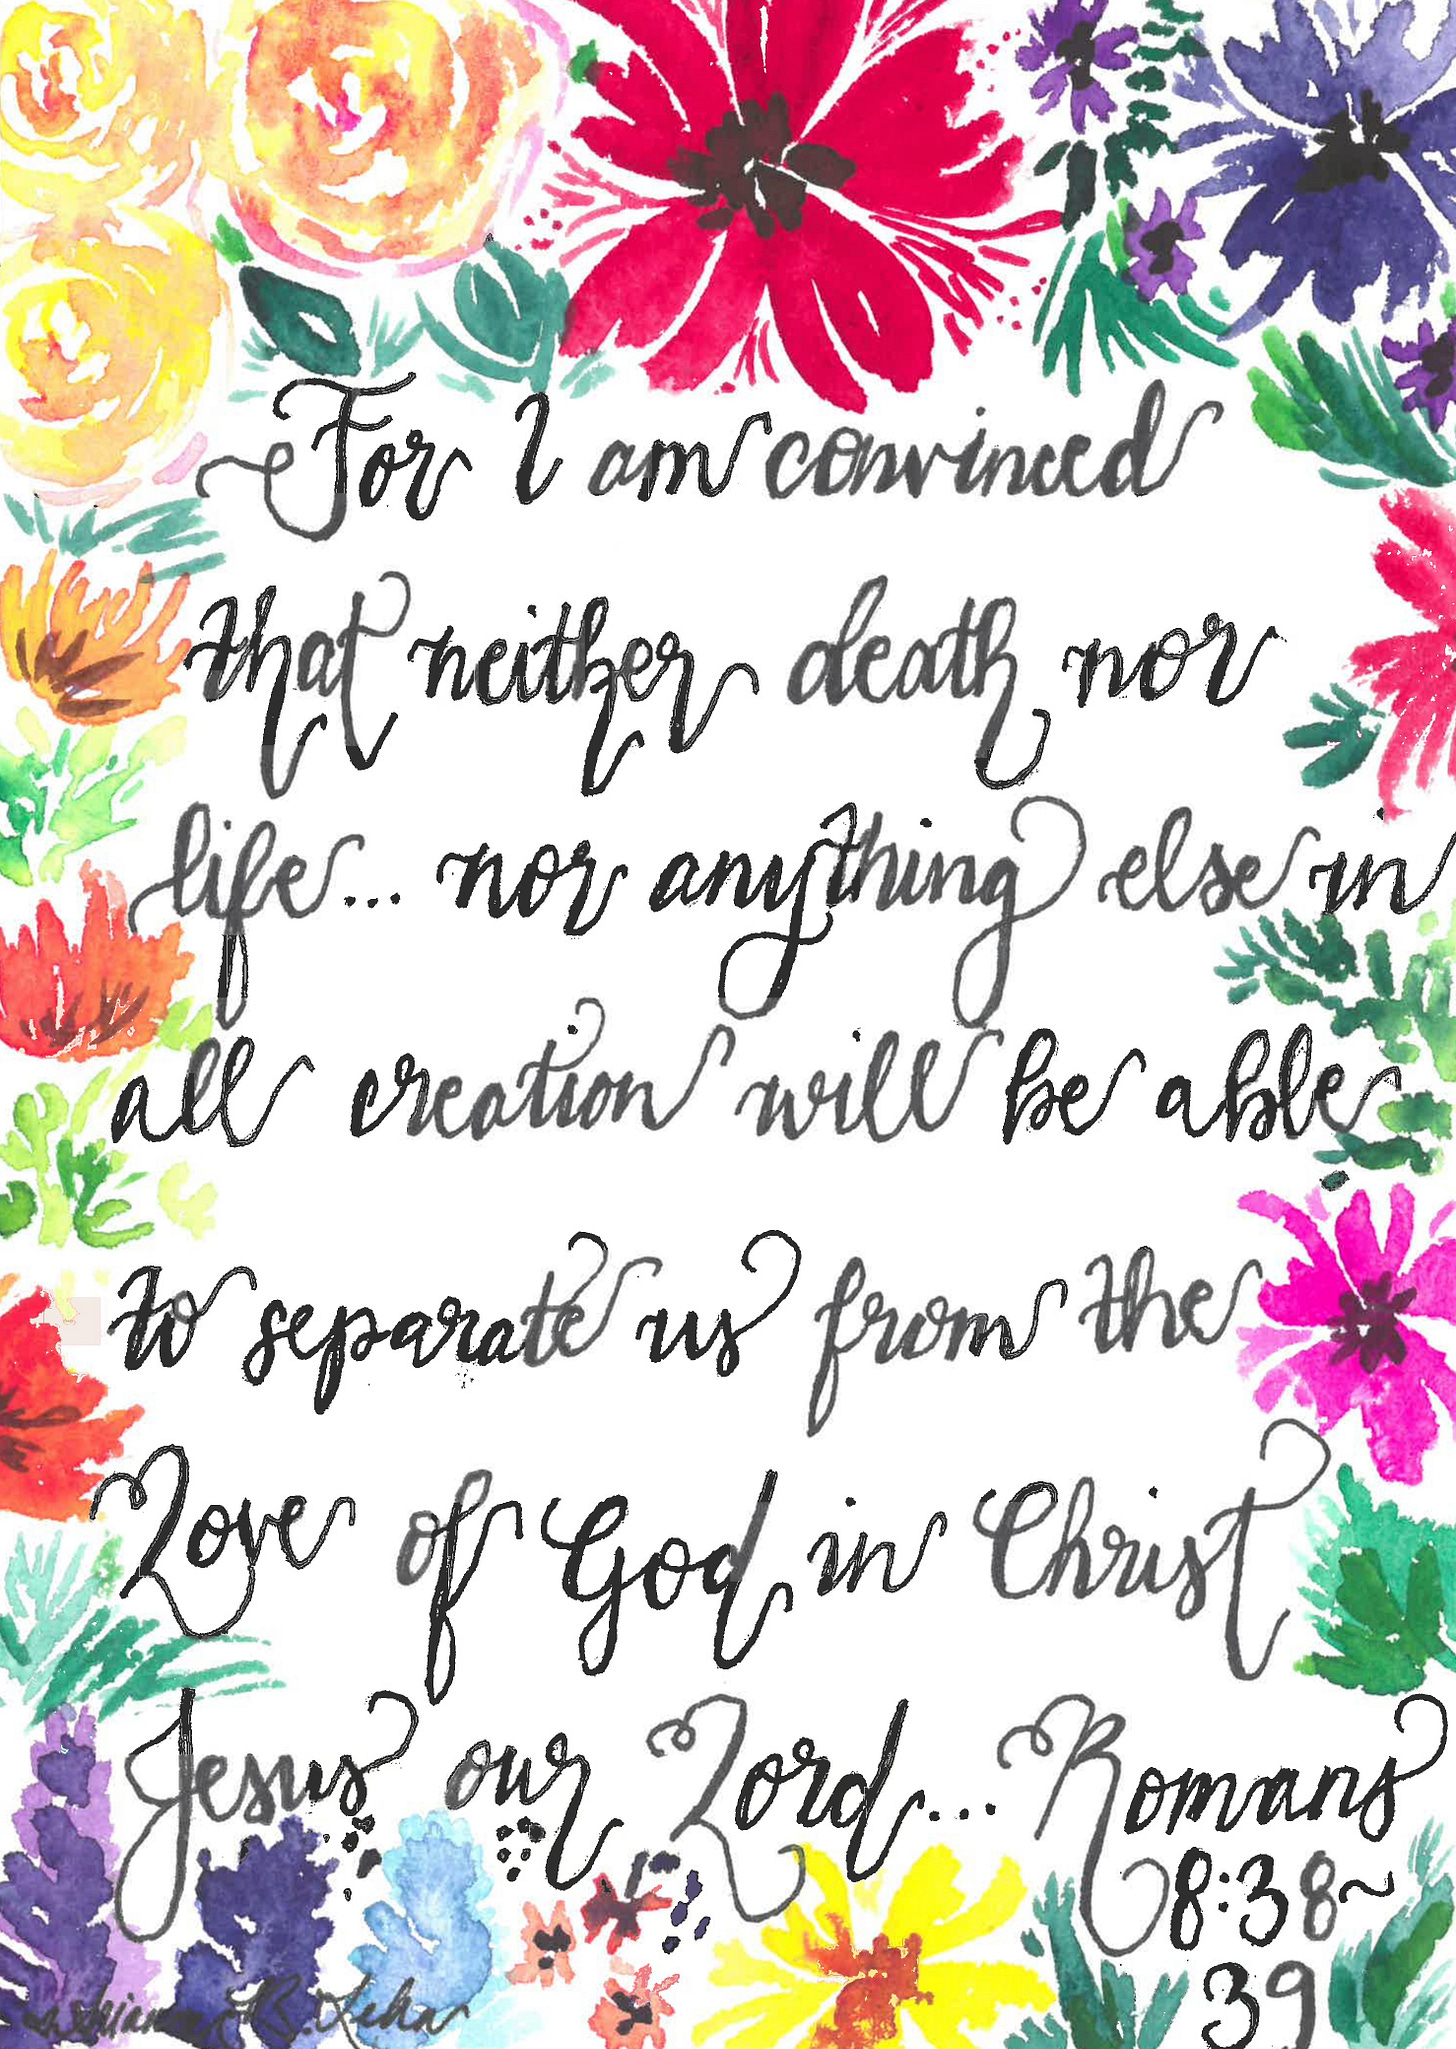 For I am convinced
that neither death nor
life... nor anything else in
all creation will be able
to separate us from the
Love of God in Christ
Jesus our Lord... Romans
8:38~
39
B. Leha